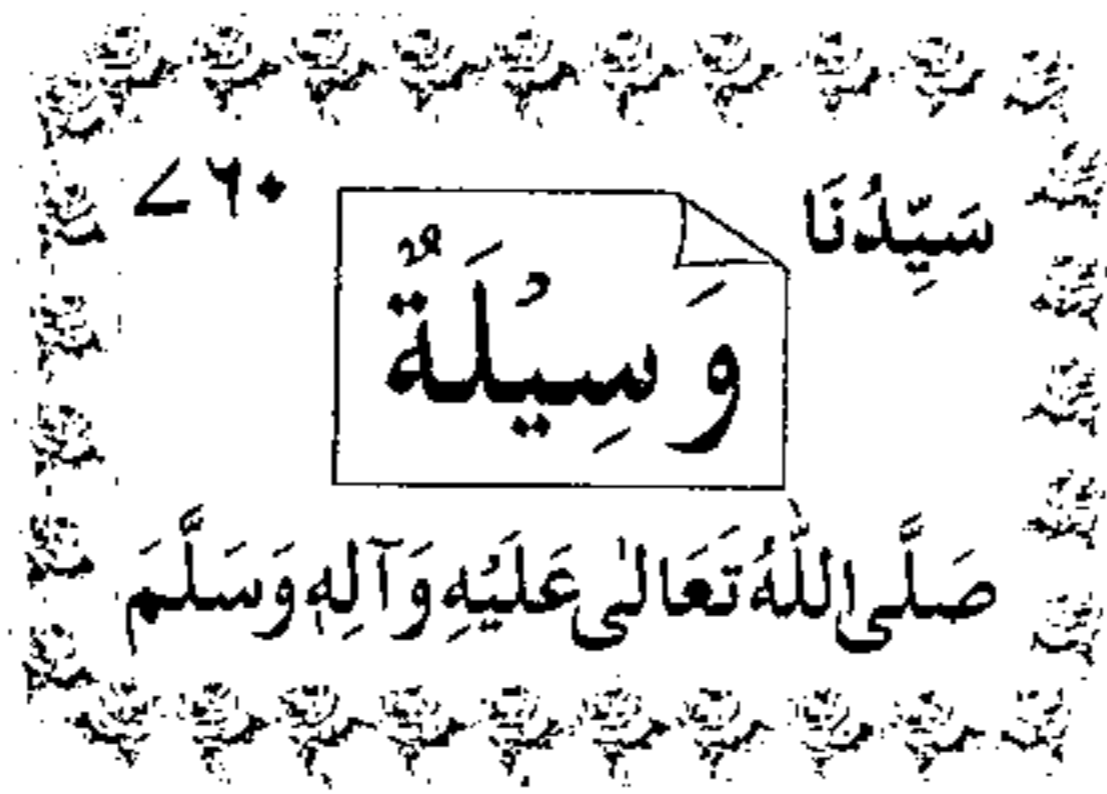 سَيِّدُنَا ۷۶۰
وَسِيْلَةٌ
صَلَّى اللّٰهُ تَعَالٰى عَلَيْهِ وَآلِهٖ وَسَلَّمَ